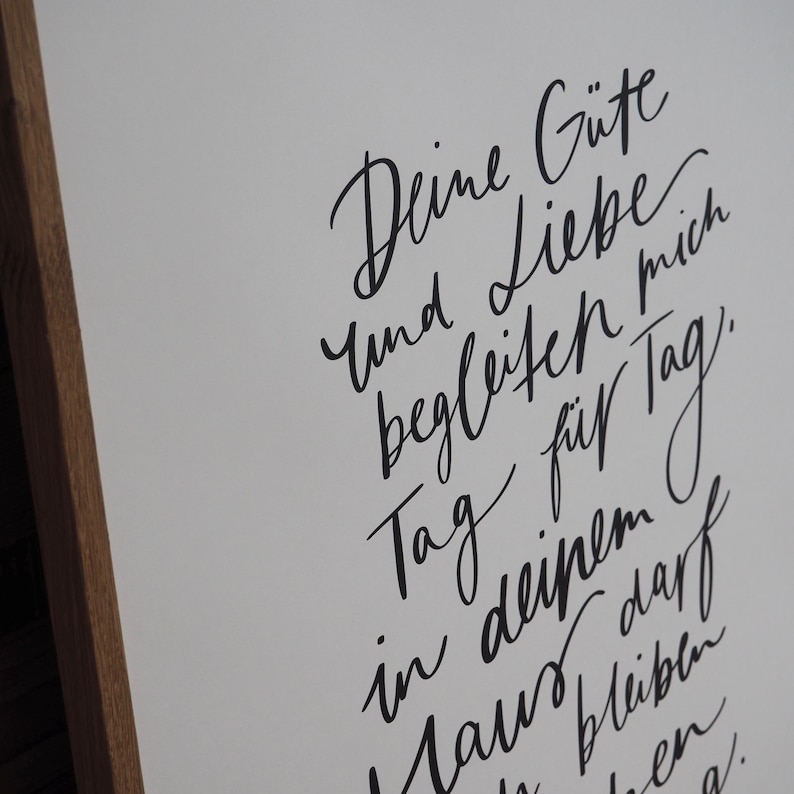 Deine Güte
und Liebe
begleiten mich
Tag für Tag,
in deinem
Haus darf
bleiben